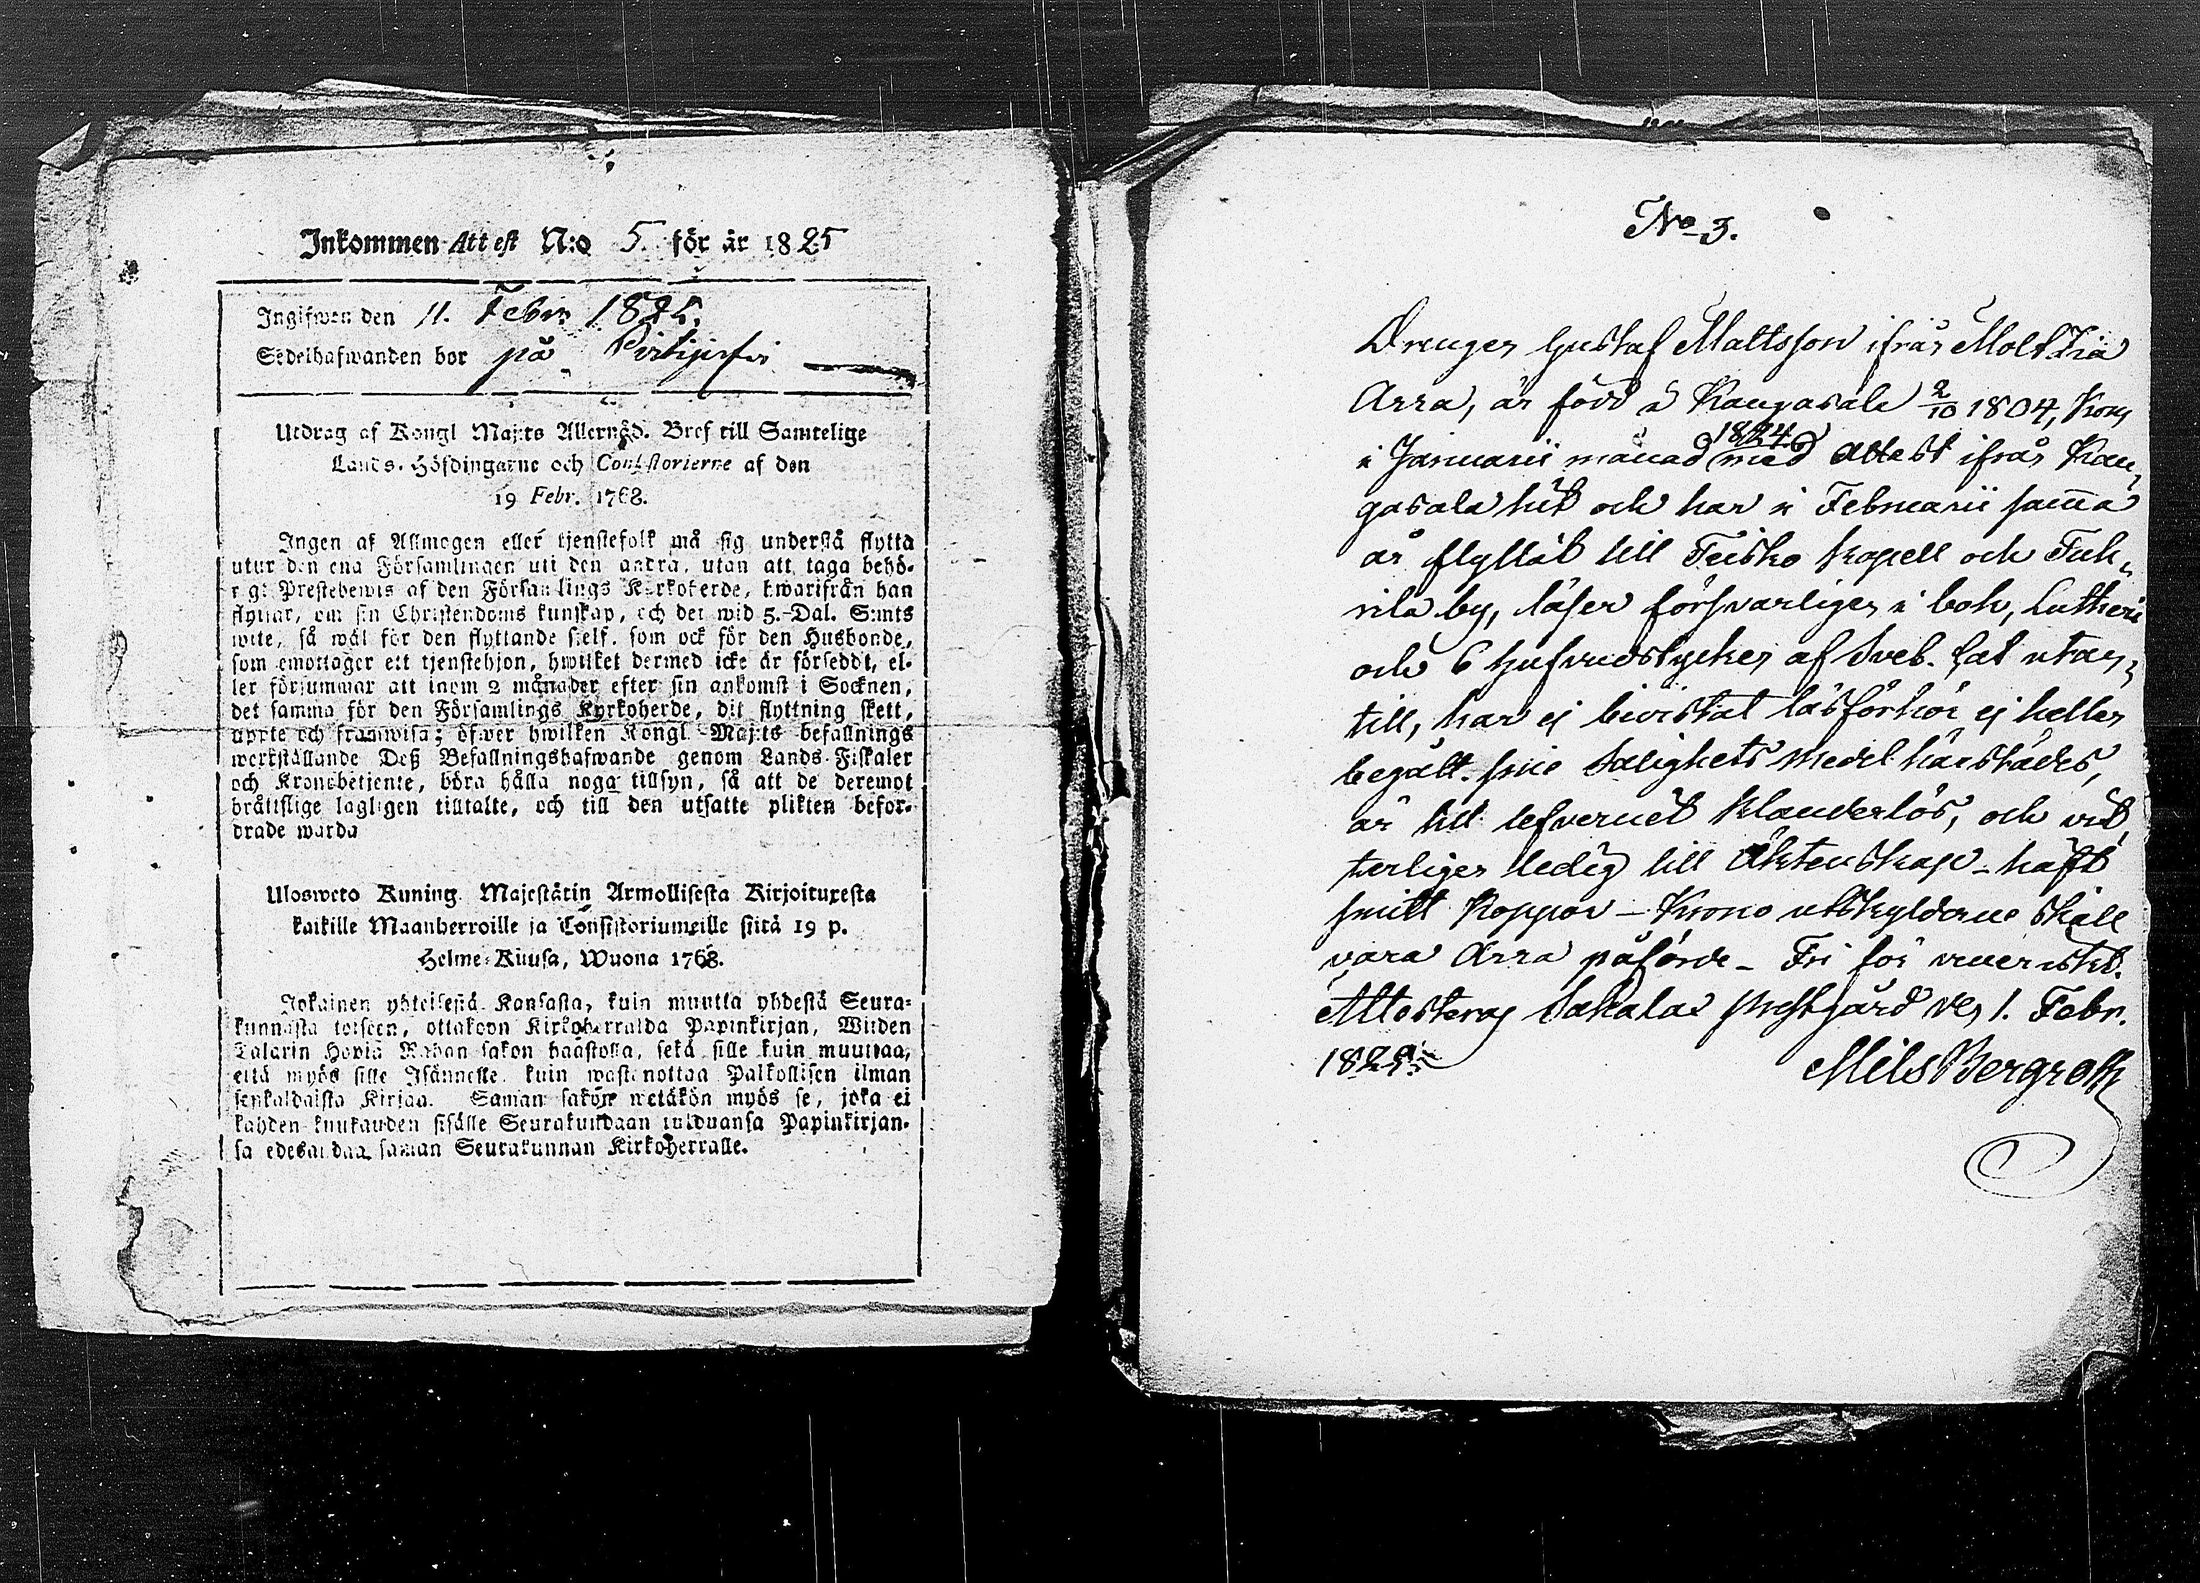 Inkommen Attest N:o 5. för år 1825
Ingifwen den 11. Febr. 1825.
Sedelhafwanden bor på
Utdrag af Kongl Maj:ts Allernåd. Bref till Samtelige
Lands-Höfdingarne och Consistorierne af den
19 Febr. 1768.
Ingen af Allmogen eller tjenstefolk må sig understå flytta
utur den ena Församlingen uti den andra, utan att taga behö-
rigt Prestebewis af den Församlings Kyrkoherde, hwarifrån han
flyttar, om sin Christendoms kunskap, och det wid 5. Dal. S:mts
wite, så wäl för den flyttande sjelf, som ock för den Husbonde,
som emottager ett tjenstehjon, hwilket dermed icke är försedt, el-
ler försummar att inom 2 månader efter sin ankomst i Socknen,
det samma för den Församlings Kyrkoherde, dit flyttning skett,
uppte och framwisa; öfwer hwilken Kongl. Maj:ts befallnings
werkställande Deß Befallningshafwande genom Lands-Fiskaler
och Kronobetjente, böra hålla noga tillsyn, så att de deremot
bråttslige lagligen tilltalte, och till den utsatte plikten befor-
drade warda
Ulosweto Kuning. Majestätin Armollisesta Kirjoituxesta
kaikille Maanherroille ja Consistoriumeille siitä 19 p.
Helme-Kuusa, Wuona 1768.
Jokainen yhteisestä Kansasta, kuin muutta yhdestä Seura-
kunnasta toiseen, ottakoon Kirkoherralda Papinkirjan, Wiiden
Talarin Hopia Rahan sakon haastolla, sekä sille kuin muuttaa,
että myös sille Isännelle, kuin wastanottaa Palkollisen ilman
senkaldaista Kirjaa. Saman sakon wetäkön myös se, joka ei
kahden kuukauden sisälle Seurakundaan tulduansa Papinkirjan-
sa edesandaa saman Seurakunnan Kirkoherralle.
No 3.
Drengen Gustaf Mattsson ifrån
Arra, är född i Kangasala 2/10 1804, kom
i Januarii månad 1824 med Attest ifrån Kan-
gasala hit och har i Februarii samma
år flyttat till Teisko Kapell och
by, läser försvarligen i bok, Lutheri
och 6 hufvudstycken af Sveb. Cat utan-
till, har ej bivistat läsförhör ej heller
begått sine Salighets Medel härstädes,
är till lefvernet klanderlös, och vit-
terligen ledig till Äktenskap - haft
smitt Koppor - Krono utskylderne skall
vara Arra påförde - Fri för
Attesteras Sahalax prestgård den 1. Febr.
1825.
Nils Bergroth